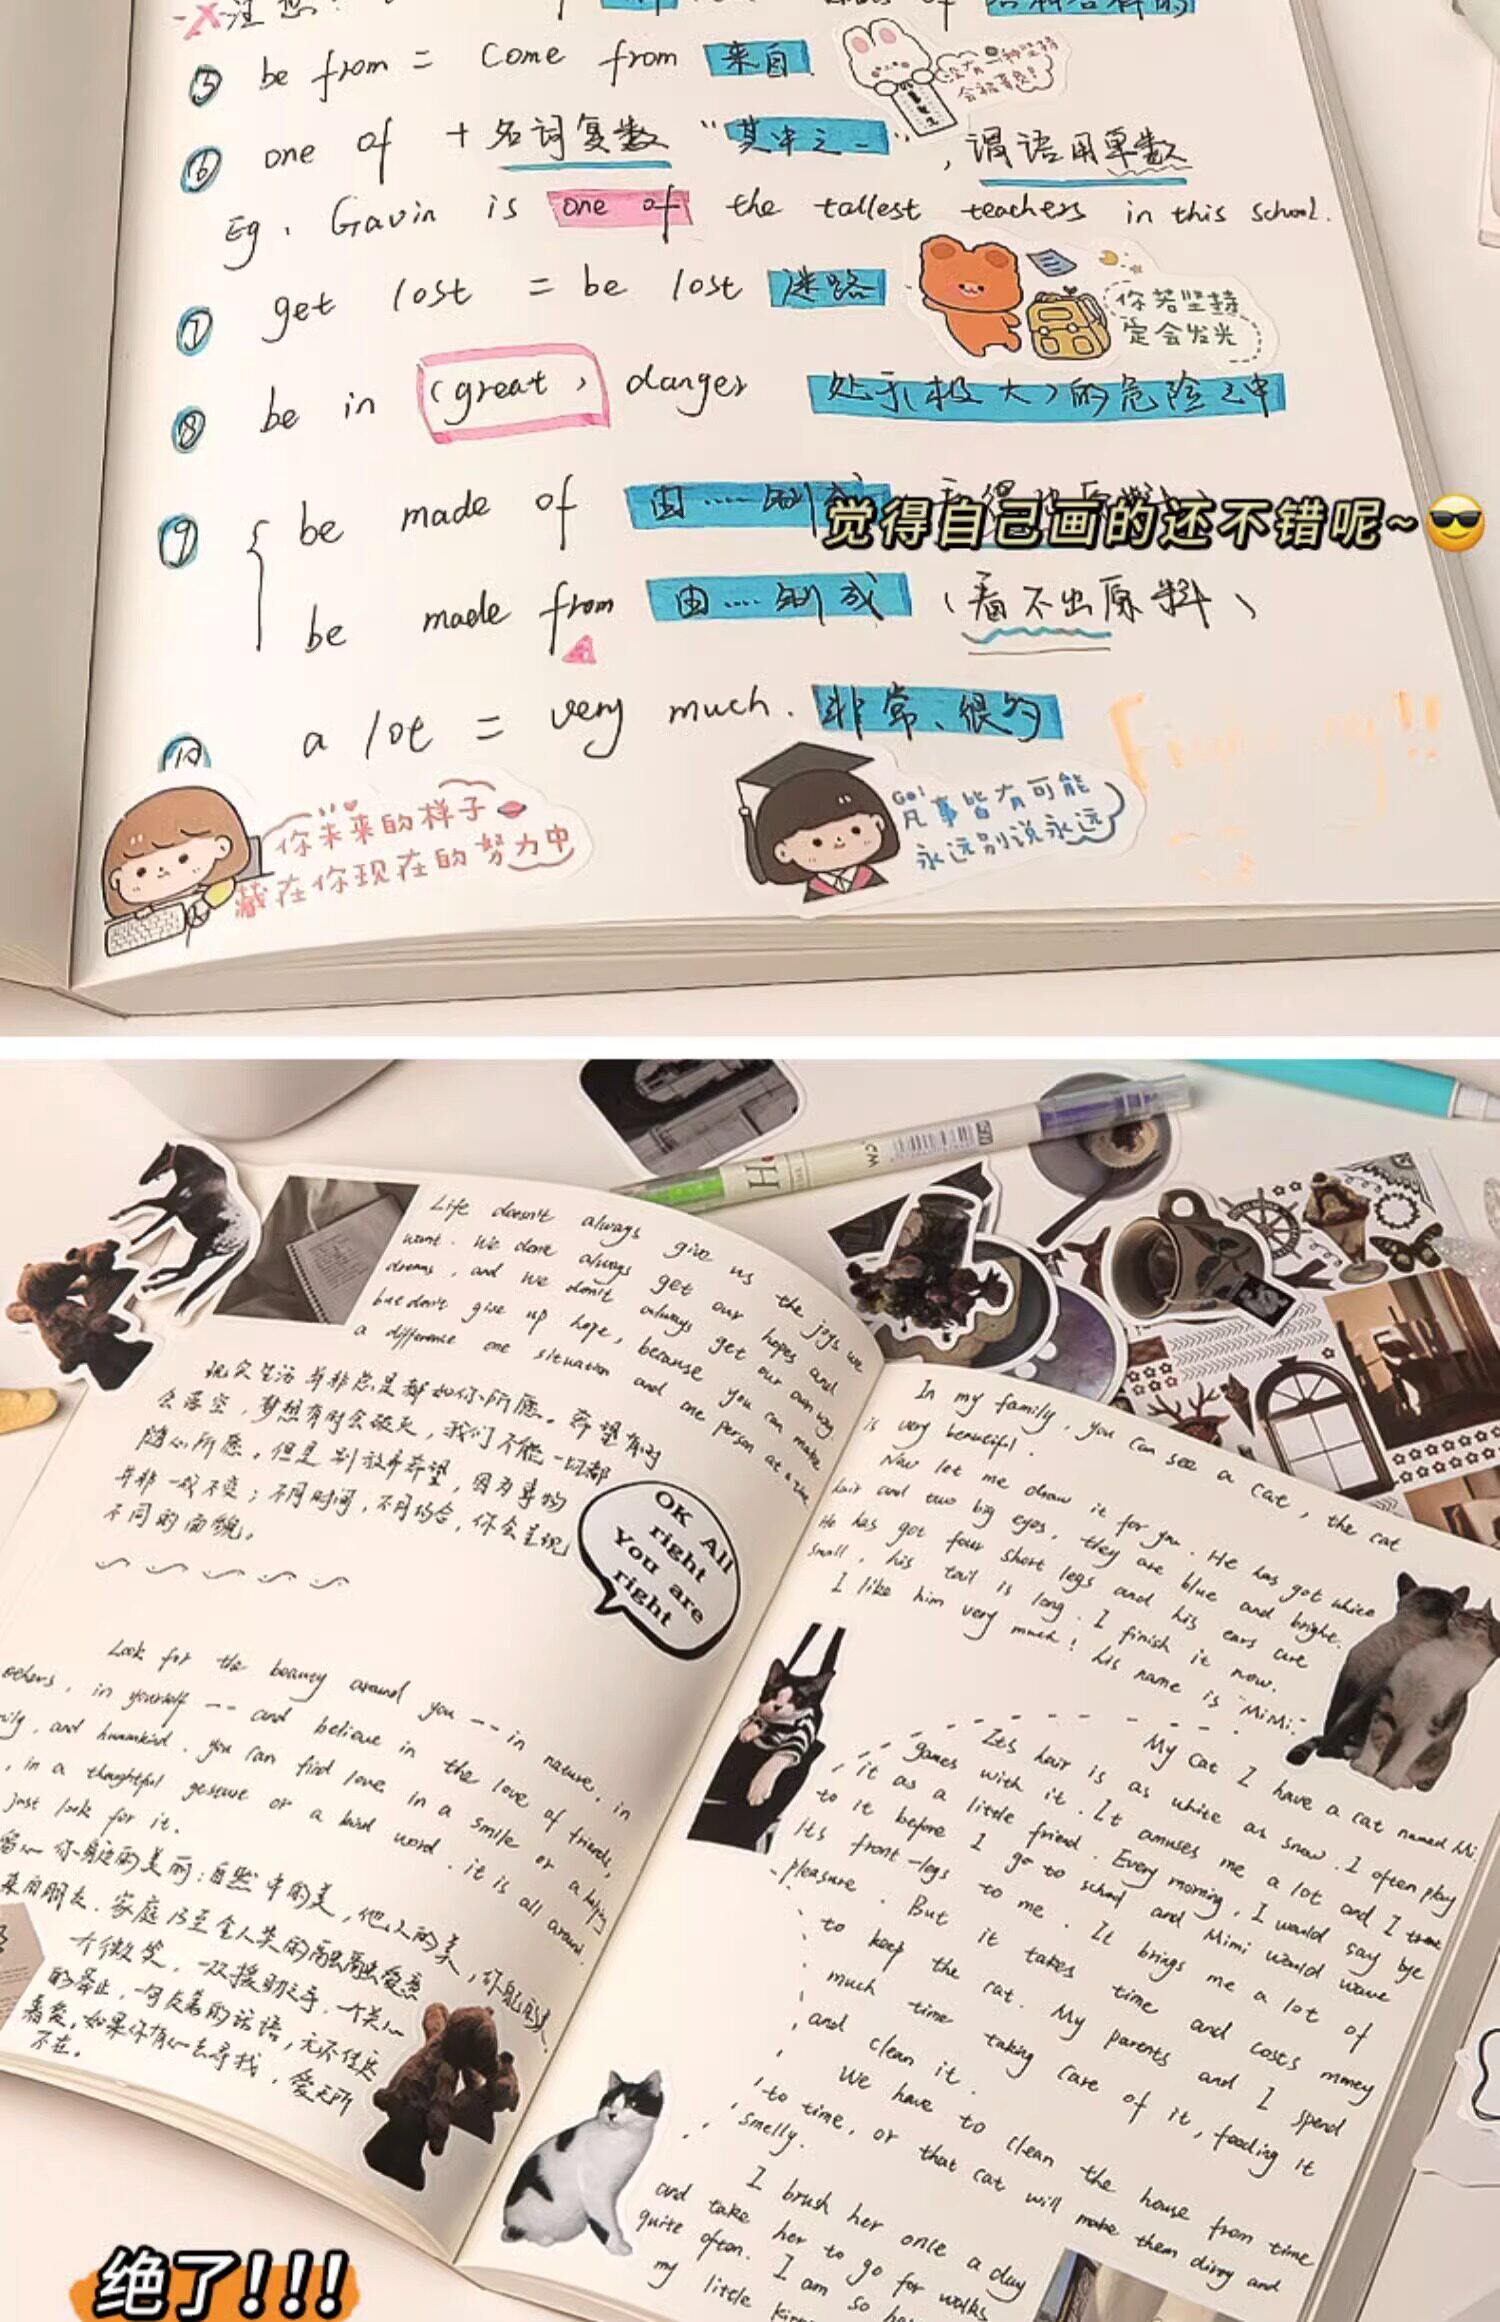 注意
⑤ be from = come from 来自
没有一种坚持
会被辜负!
⑥ one of + 名词复数 “其中之一”, 谓语用单数
Eg. Gavin is one of the tallest teachers in this school.
⑦ get lost = be lost 迷路
你若坚持
定会发光
⑧ be in (great) danger 处于(极大)的危险之中
⑨ be made of 由……制成
觉得自己画的还不错呢~
be made from 由……制成 (看不出原料)
⑩ a lot = very much. 非常、很多
你未来的样子
藏在你现在的努力中
Go!
凡事皆有可能
永远别说永远
Life doesn't always give us the joys we
want. We done always get our hopes and
dreams, and we don't always get our own way.
but don't give up hope, because you can make
a difference one situation and one person at a time
现实生活并非总是都如你所愿。希望有时
会落空,梦想有时会破灭,我们不能一切都
随心所愿。但是别放弃希望,因为事物
并非一成不变;不同时间,不同场合,你会呈现
不同的面貌。
OK All
right
You are
right
Look for the beauty around you -- in nature, in
others, in yourself -- and believe in the love of friends,
and humankind. you can find love in a smile or a helping
, in a thoughtful gesture or a kind word. it is all around.
just look for it.
留心你身边的美丽:自然中的美,他人的美,你能
来自朋友、家庭乃至全人类的融融爱意
个微笑,一双援助之手,一个关心
的举止,一句友善的话语,无不住这
着爱。如果你有心去寻找,爱无所
不在。
In my family, you can see a cat, the cat
is very beautiful.
Now let me draw it for you. He has got white
hair and two big eyes, they are blue and bright.
He has got four short legs and his ears are
small, his tail is long. I finish it now.
I like him very much! his name is "MiMi."
My cat I have a cat named Mi
Its hair is as white as snow. I often play
games with it. It amuses me a lot and I treat
it as a little friend. Every morning, I would say bye
to it before I go to school and Mimi would wave
its front-legs to me. It brings me a lot of
pleasure. But it takes time and costs money
to keep the cat. My parents and I spend
much time taking care of it, feeding it
and clean it.
We have to clean the house from time
to time, or that cat will make them dirty and
smelly.
I brush her once a day
and take her to go for walks
quite often. I am so
my little
绝了!!!